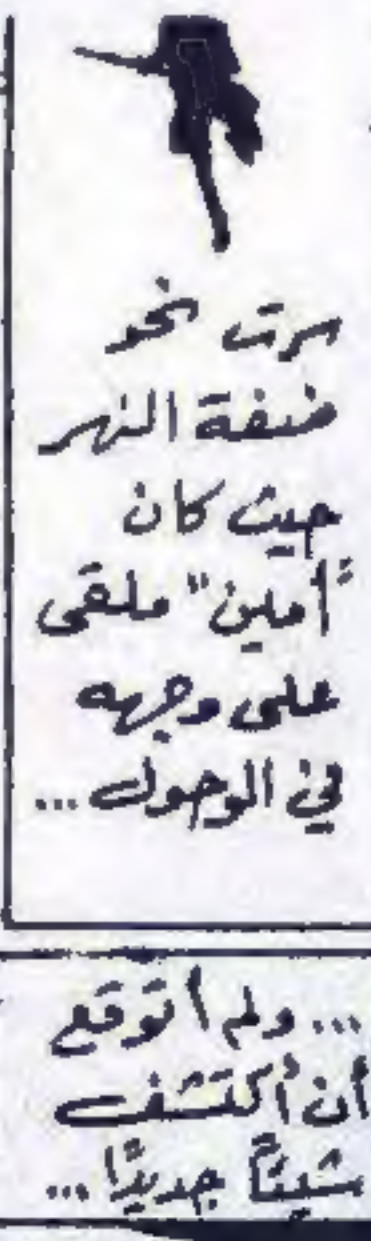 سرت نحو
ضفة النهر
حيث كان
"أملين" ملقى
على وجهه
في الوحول...
... ولم أتوقع
أن أكتشف
شيئاً جديدًا...